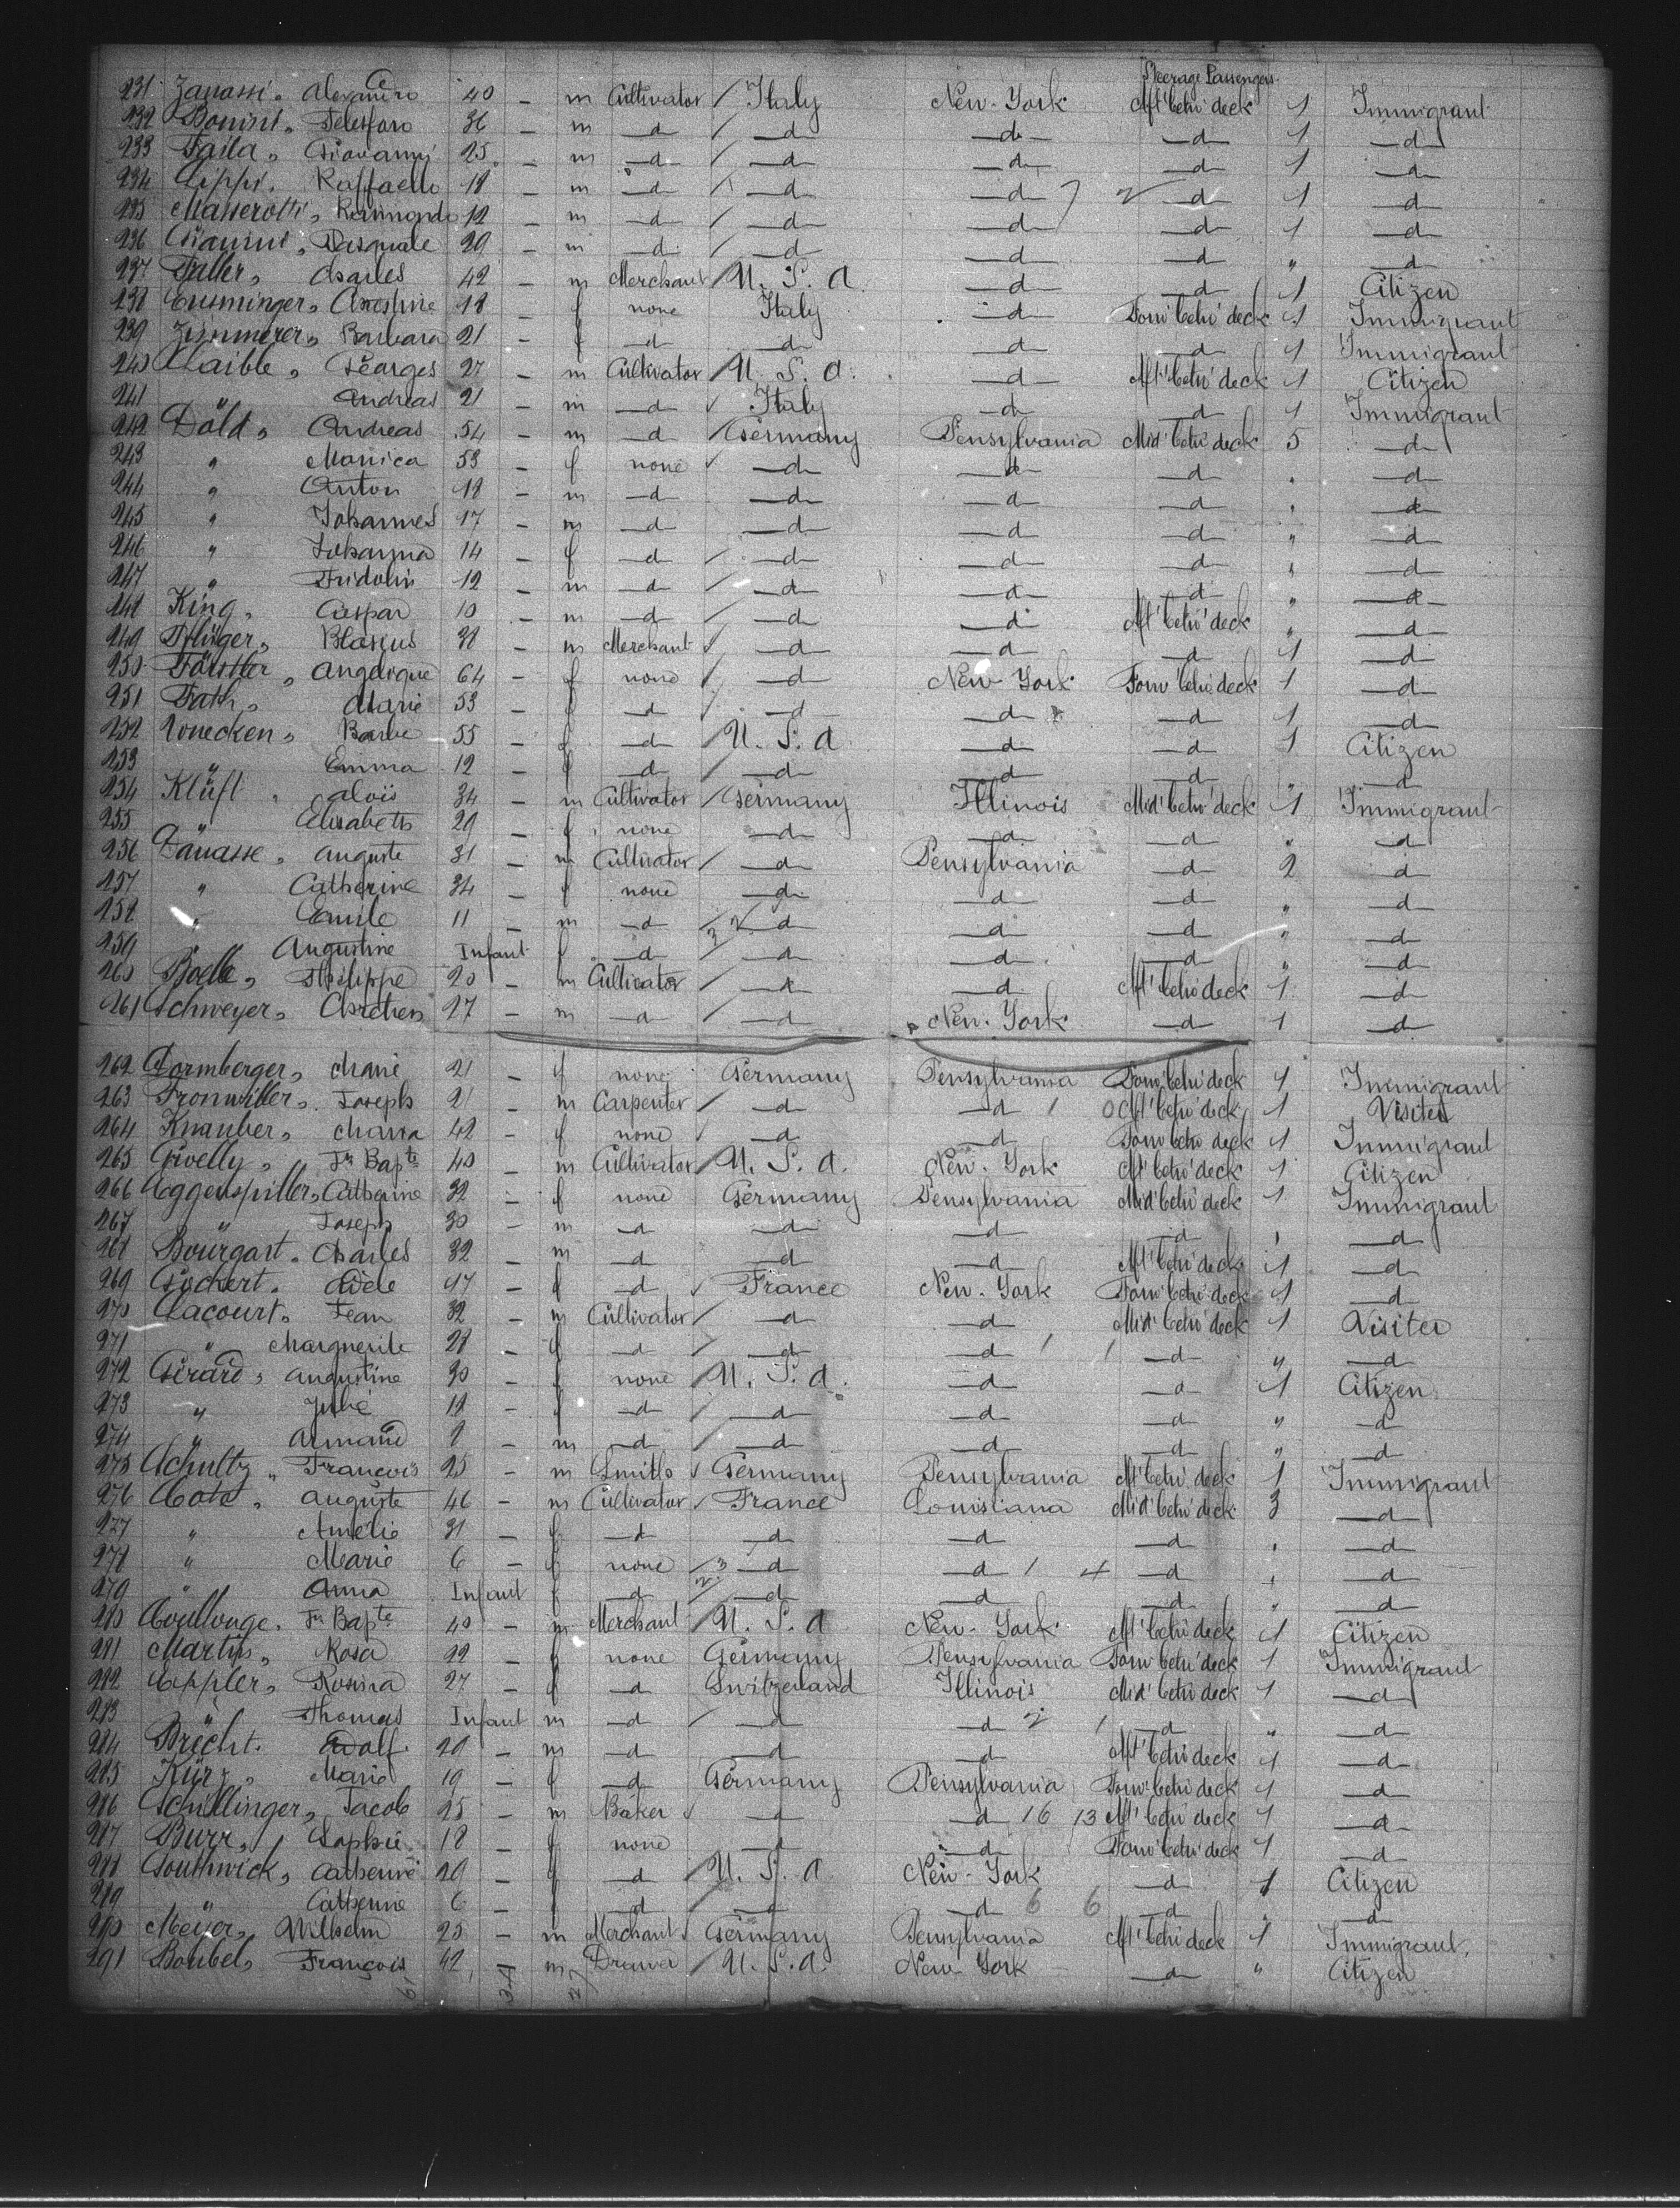 Steerage Passengers
231 Zanassi, Alexandro 40 - m Cultivator / Italy New-York Aft betw deck 1 Immigrant
232 Bonini, Telesforo 36 - m -d- / -d- -d- -d- 1 -d-
233 Faila, Giovanni 25 - m -d- / -d- -d- -d- 1 -d-
234 Lippi, Raffaello 18 - m -d- / -d- -d- 7 2 -d- 1 -d-
235 Masserotti, Raimondo 12 - m -d- / -d- -d- -d- 1 -d-
236 Gianini, Pasquale 29 - m -d- / -d- -d- -d- " -d-
237 Faller, Charles 42 - m Merchant / U. S. A. -d- -d- 1 Citizen
238 Ensminger, Christine 18 - f none Italy -d- Forw betw deck 1 Immigrant
239 Zimmerer, Barbara 21 - f -d- -d- -d- -d- 1 Immigrant
240 Laible, Georges 27 - m Cultivator / U. S. A. -d- Aft betw deck 1 Citizen
241 " Andreas 21 - m -d- Italy -d- -d- 1 Immigrant
242 Dold, Andreas 54 - m -d- / Germany Pensylvania Mid betw deck 5 -d-
243 " Monica 53 - f none -d- -d- -d- " -d-
244 " Anton 18 - m -d- -d- -d- -d- " -d-
245 " Johannes 17 - m -d- -d- -d- -d- " -d-
246 " Johanna 14 - f -d- / -d- -d- -d- " -d-
247 " Fridolin 12 - m -d- / -d- -d- -d- " -d-
248 King, Caspar 10 - m -d- / -d- -d- Aft betw deck " -d-
249 Pflüger, Blasius 38 - m Merchant -d- -d- -d- 1 -d-
250 Förstler, Angelique 64 - f none / -d- New York Forw betw deck 1 -d-
251 Fath, Marie 53 - f -d- / -d- -d- -d- 1 -d-
252 Vonecken, Barbe 55 - f -d- / U. S. A. -d- -d- 1 Citizen
253 " Emma 12 - f -d- / -d- -d- -d- " -d-
254 Klüft, Aloïs 34 - m Cultivator / Germany Illinois Mid betw deck 1 Immigrant
255 " Elisabeth 29 - f none -d- -d- -d- " -d-
256 Danasse, Auguste 31 - m Cultivator / -d- Pensylvania -d- 2 -d-
257 " Catherine 34 - f none -d- -d- -d- " -d-
258 " Emile 11 - m -d- / -d- -d- -d- " -d-
259 " Augustine Infant f -d- / -d- -d- -d- " -d-
260 Boelle, Philippe 20 - m Cultivator / -d- -d- Aft betw deck 1 -d-
261 Schweyer, Chretien 27 - m -d- / -d- New-York -d- 1 -d-
262 Dormberger, Marie 21 - f none Germany Pensylvania Forw betw deck 1 Immigrant
263 Fronwiller, Joseph 21 - m Carpenter / -d- -d- 1 0 Aft betw deck 1 Visiter
264 Knauber, Maria 42 - f none -d- -d- Forw betw deck 1 Immigrant
265 Givelly, Jn Bapte 40 - m Cultivator / U. S. A. New-York Aft betw deck 1 Citizen
266 Eggenspiller, Catherine 32 - f none Germany Pensylvania Mid betw deck 1 Immigrant
267 " Joseph 30 - m -d- -d- -d- -d- " -d-
268 Bourgart, Charles 32 - m -d- -d- -d- Aft betw deck 1 -d-
269 Göckert, Adele 47 - f -d- France New-York Forw betw deck 1 -d-
270 Lacourt, Jean 32 - m Cultivator / -d- -d- Mid betw deck 1 Visiter
271 " Marguerite 28 - f -d- / -d- -d- 1 1 -d- " -d-
272 Girard, Augustine 30 - f none / U. S. A. -d- -d- 1 Citizen
273 " Julie 12 - f -d- / -d- -d- -d- " -d-
274 " Armand 9 - m -d- / -d- -d- -d- " -d-
275 Schultz, François 25 - m Smith Germany Pensylvania Aft betw deck 1 Immigrant
276 Cote, Auguste 46 - m Cultivator / France Louisiana Mid betw deck 3 -d-
277 " Amelie 31 - f -d- -d- -d- -d- " -d-
278 " Marie 6 - f none / -d- -d- 1 4 -d- " -d-
279 " Anna Infant f -d- / -d- -d- -d- " -d-
280 Coullonge, Jn Bapte 40 - m Merchant / U. S. A New-York Aft betw deck 1 Citizen
281 Martin, Rosa 22 - f none Germany Pensylvania Forw betw deck 1 Immigrant
282 Eppler, Rosina 27 - f -d- Switzerland Illinois Mid betw deck 1 -d-
283 " Thomas Infant m -d- / -d- -d- 2 1 -d- " -d-
284 Brecht, Adolf 20 - m -d- -d- -d- Aft betw deck 1 -d-
285 Kürz, Marie 19 - f -d- Germany Pensylvania Forw betw deck 1 -d-
286 Schillinger, Jacob 25 - m Baker -d- -d- 16 13 Aft betw deck 1 -d-
287 Burr, Sophie 18 - f none -d- -d- Forw betw deck 1 -d-
288 Southwick, Catherine 29 - f -d- / U. S. A New-York -d- 1 Citizen
289 " Catherine 6 - f -d- / -d- -d- 6 6 -d- " -d-
290 Meyer, Wilhelm 25 - m Merchant Germany Pensylvania Aft betw deck 1 Immigrant
291 Boubel, François 42 - m Drawer / U. S. A. New-York -d- " Citizen
61 34 27